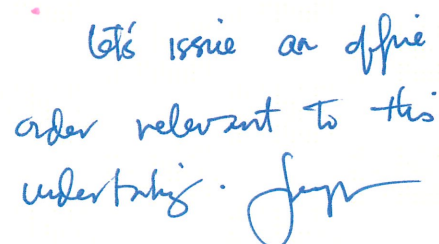 Let's issue an office
order relevant to this
undertaking.